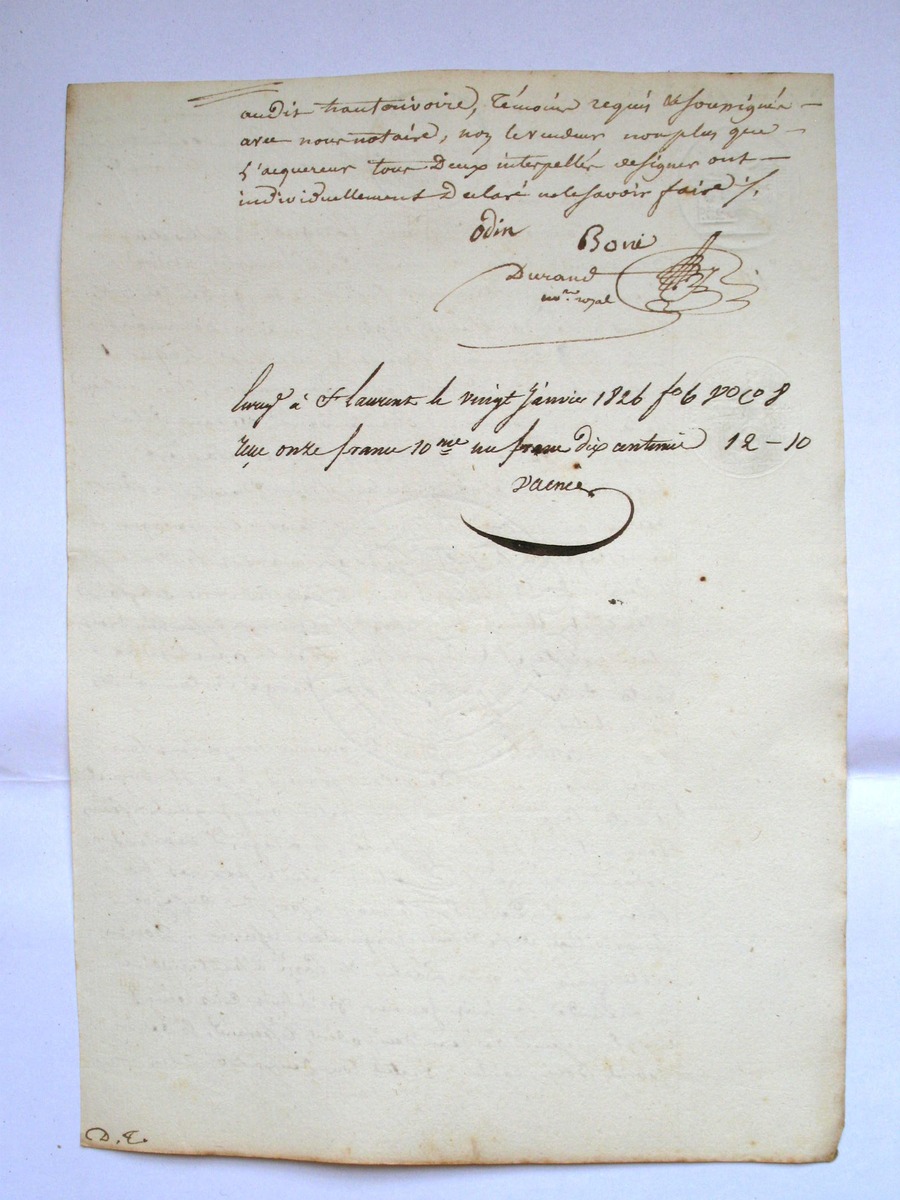 audit hautenvoire, témoins requis et soussignés –
avec nous notaire, non le vendeur non plus que –
L'acquereur tous Deux interpellés designer ont –
individuellement Déclaré nele savoir faire ./.
odin Boné
Durand
no.re royal
Enreg.é à St Laurent le vingt Janvier 1826 fo 6 Vo Co 8
reçu onze francs 10me un franc dix centimes 12 – 10
D. E.